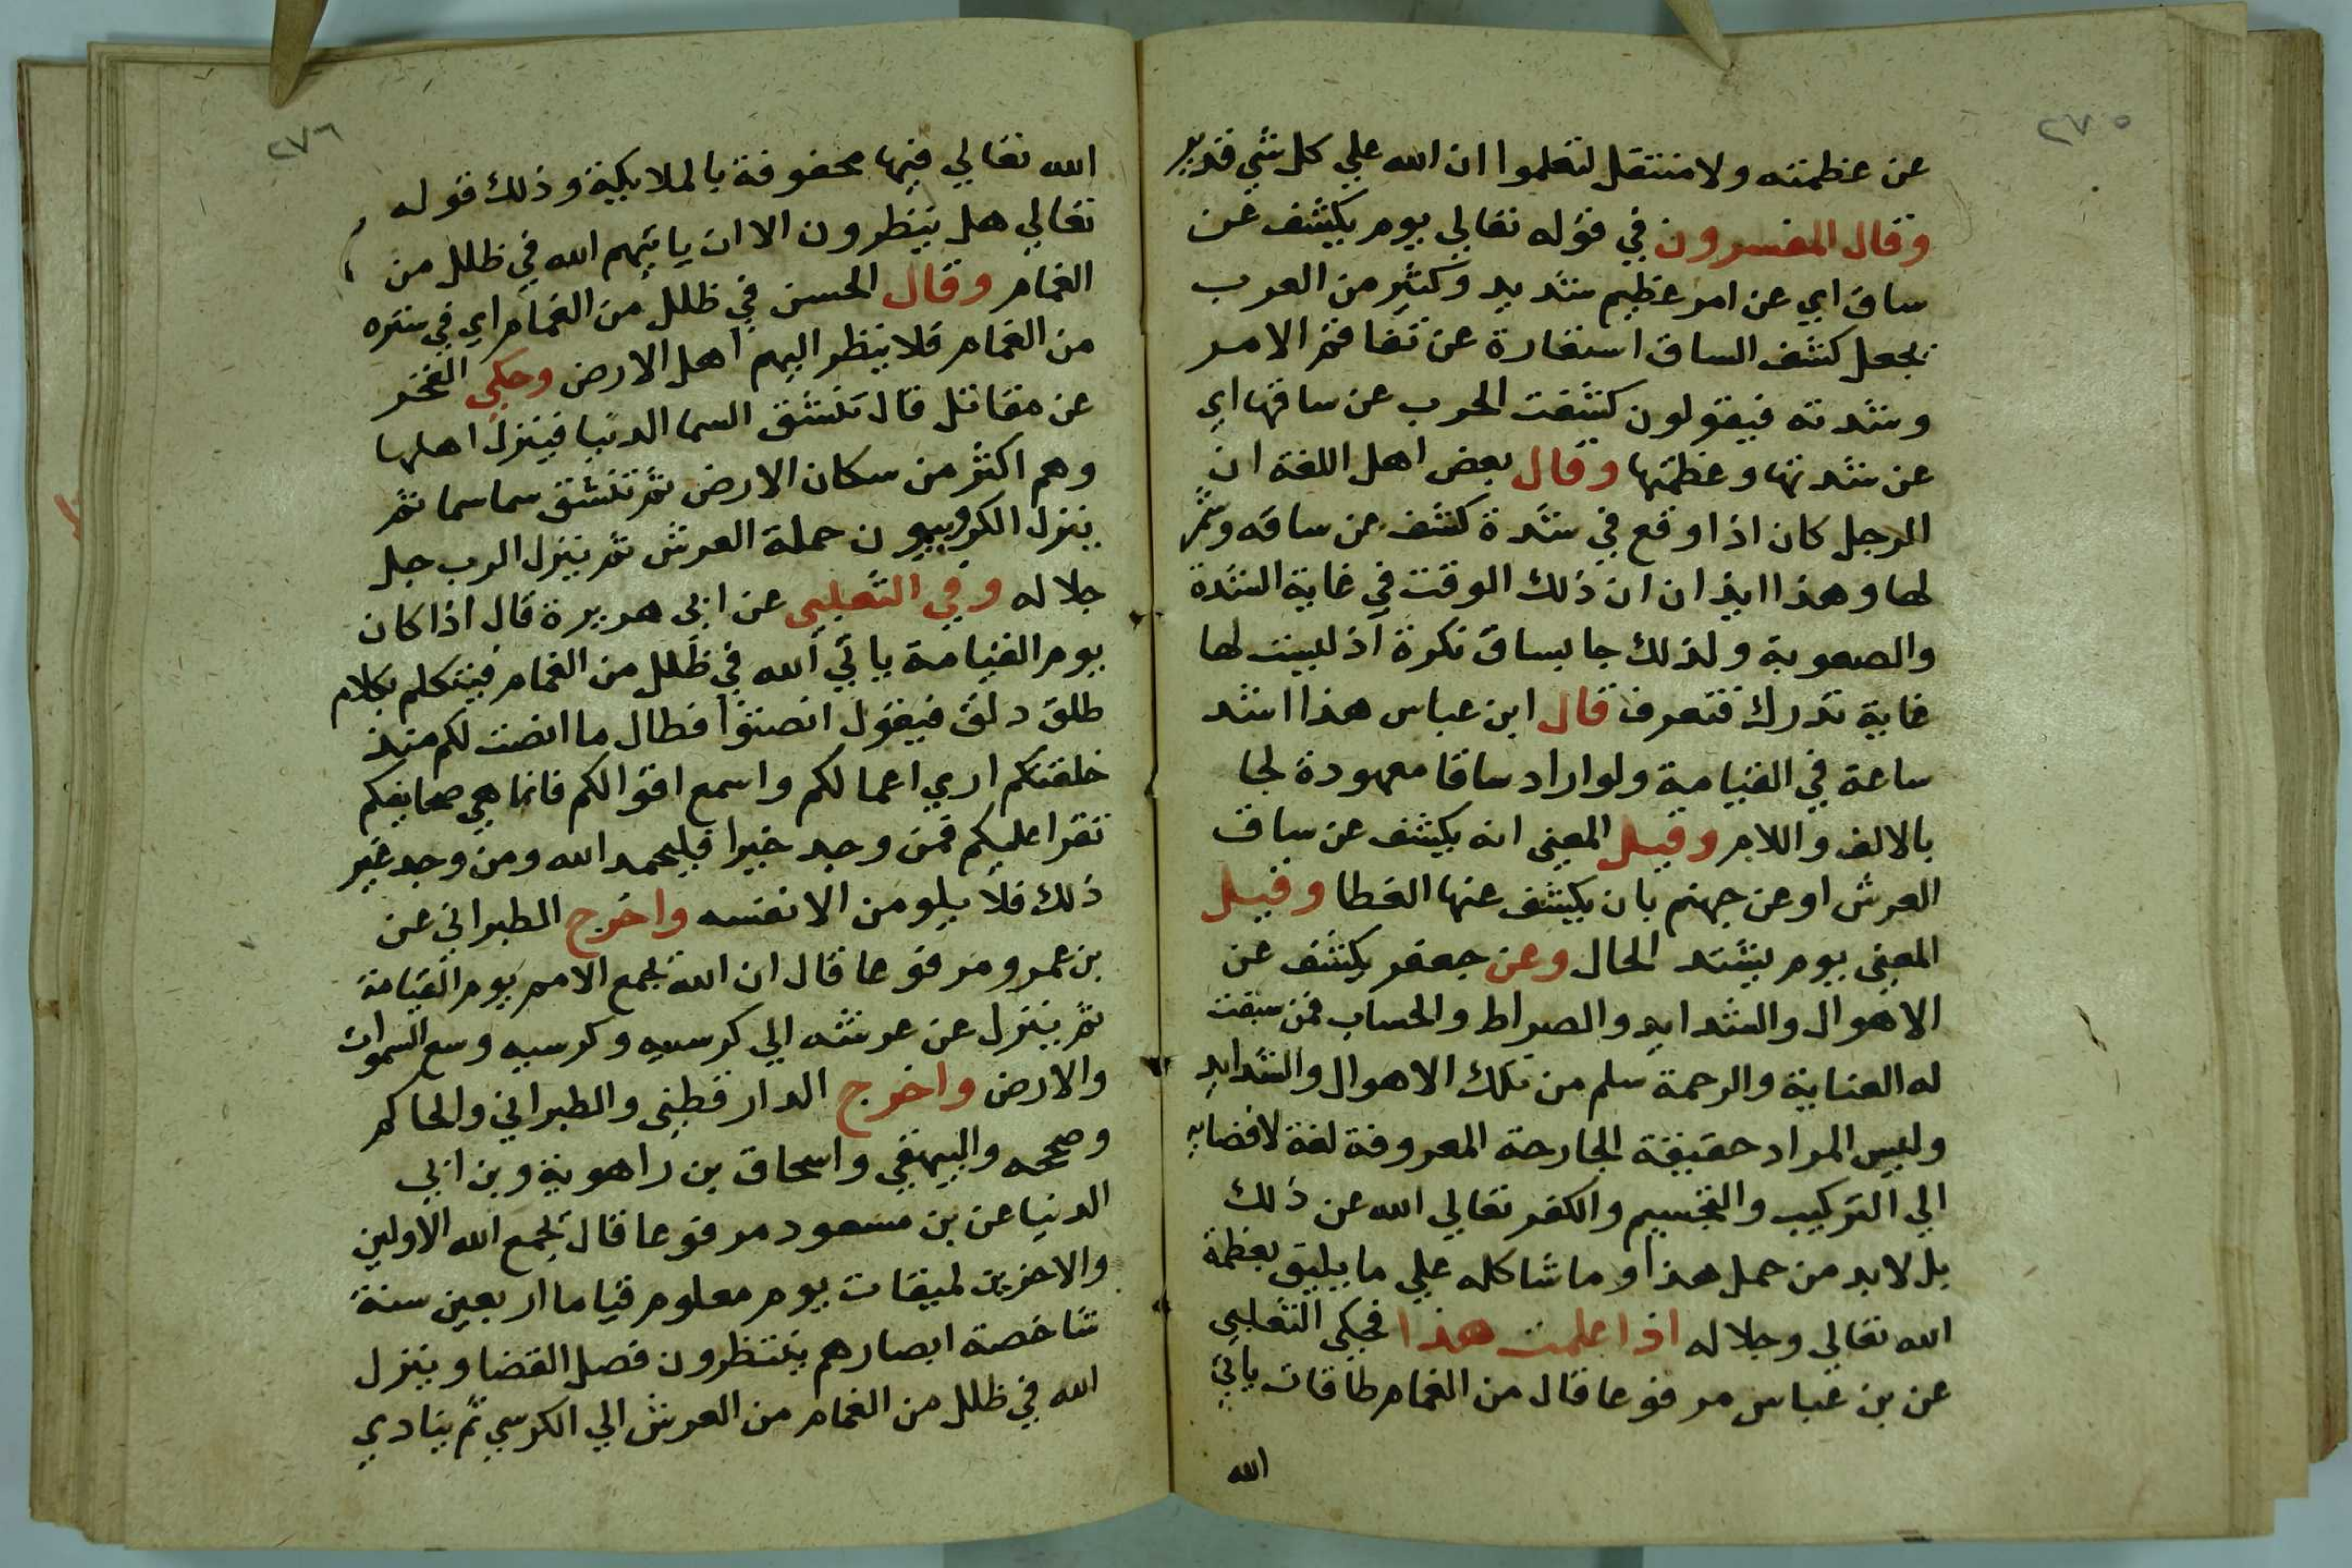 ٢٧٥
عن عظمته ولا منتقل لتعلموا ان الله علي كل شي قدير
وقال المفسرون في قوله تعالي يوم يكشف عن
ساق اي عن امر عظيم شديد وكثير من العرب
يجعل كشف الساق استعارة عن تفاقم الامر
وشدته فيقولون كشفت الحرب عن ساقها اي
عن شدتها وعظمتها وقال بعض اهل اللغة ان
الرجل كان اذا وقع في شدة كشف عن ساقه وشمر
لها وهذا ايذان ان ذلك الوقت في غاية الشدة
والصعوبة ولذلك جا بساق نكرة اذ ليست لها
غاية تدرك فتعرف قال ابن عباس هذا اشد
ساعة في القيامة ولو اراد ساقا معهودة لجا
بالالف واللام وقيل المعني انه يكشف عن ساق
العرش او عن جهنم بان يكشف عنها الغطا وقيل
المعني يوم يشتد الحال وعن جعفر يكشف عن
الاهوال والشدايد والصراط والحساب فمن سبقت
له العناية والرحمة سلم من تلك الاهوال والشدايد
وليس المراد حقيقة الجارحة المعروفة لغة لافضايه
الي التركيب والتجسيم والكفر تعالي الله عن ذلك
بل لابد من حمل هذا وما شاكله علي ما يليق بعظمة
الله تعالي وجلاله اذا علمت هذا فحكي الثعلبي
عن بن عباس مرفوعا قال من الغمام طاقات ياتي
الله
٢٧٦
الله تعالي فيها محفوفة بالملايكية وذلك قوله
تعالي هل ينظرون الا ان ياتيهم الله في ظلل من
الغمام وقال الحسن في ظلل من الغمام اي في ستره
من الغمام فلا ينظر اليهم اهل الارض وحكي الفخر
عن مقاتل قال تنشق السما الدنيا فينزل اهلها
وهم اكثر من سكان الارض ثم تنشق سما سما ثم
ينزل الكروبيون حملة العرش ثم ينزل الرب جل
جلاله وفي الثعلبي عن ابي هريرة قال اذا كان
يوم القيامة ياتي الله في ظلل من الغمام فيتكلم بكلام
طلق دلق فيقول انصتوا فطال ما انصت لكم منذ
خلقتكم اري اعمالكم واسمع اقوالكم فانما هي صحايفكم
تقرا عليكم فمن وجد خيرا فليحمد الله ومن وجد غير
ذلك فلا يلومن الا نفسه واخرج الطبراني عن
بن عمرو مرفوعا قال ان الله يجمع الامم يوم القيامة
ثم ينزل عن عرشه الي كرسيه وكرسيه وسع السموات
والارض واخرج الدارقطني والطبراني والحاكم
وصححه والبيهقي واسحاق بن راهوية وبن ابي
الدنيا عن بن مسعود مرفوعا قال يجمع الله الاولين
والاخرين لميقات يوم معلوم قياما اربعين سنة
شاخصة ابصارهم ينتظرون فصل القضا وينزل
الله في ظلل من الغمام من العرش الي الكرسي ثم ينادي